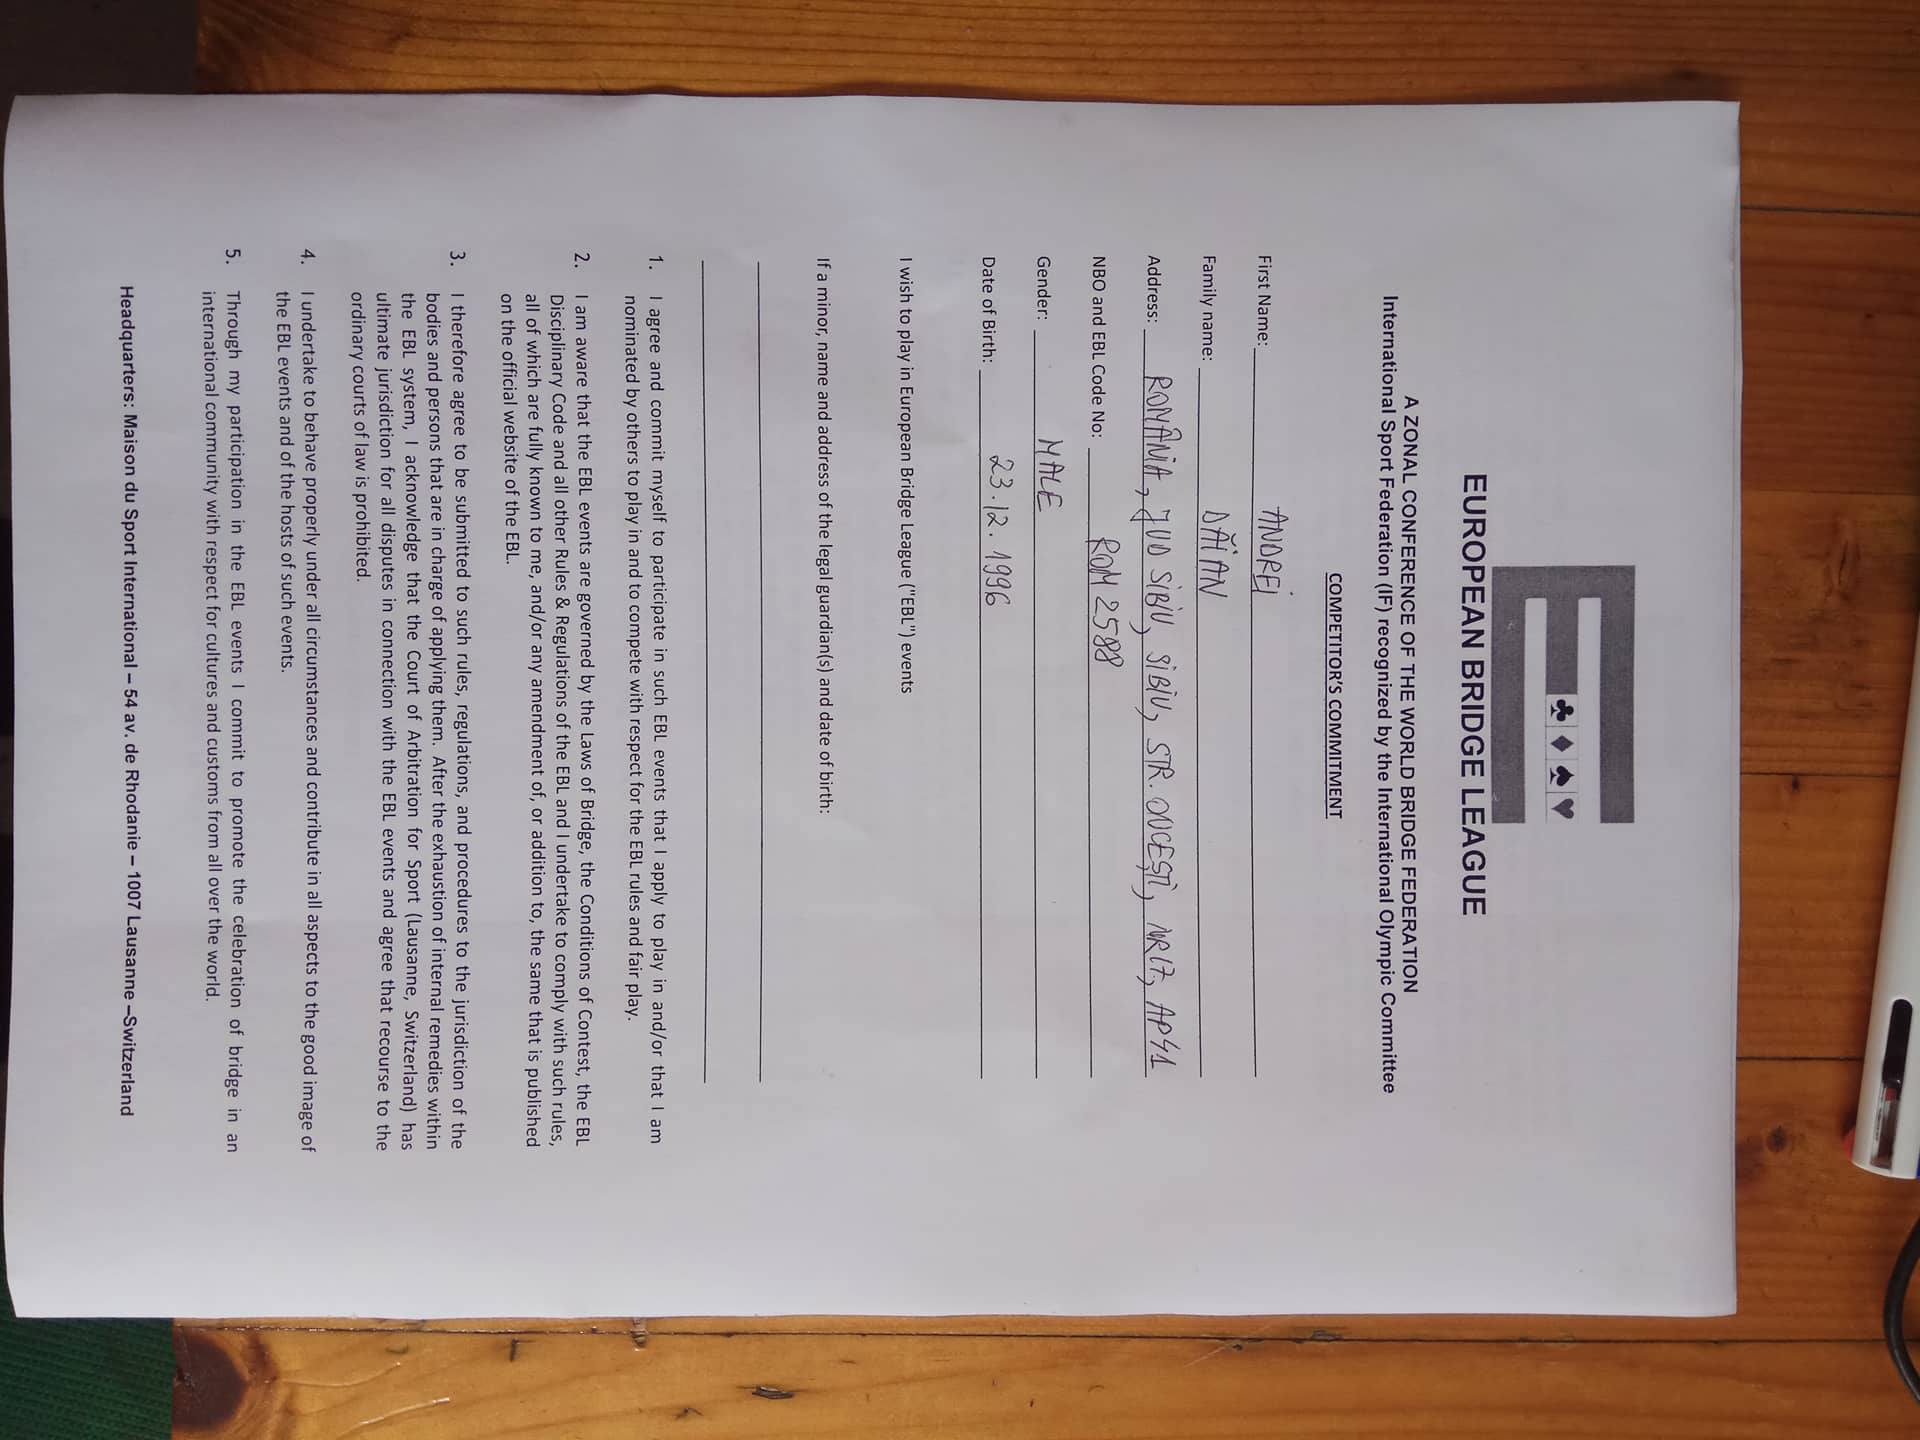 EUROPEAN BRIDGE LEAGUE
A ZONAL CONFERENCE OF THE WORLD BRIDGE FEDERATION
International Sport Federation (IF) recognized by the International Olympic Committee
COMPETITOR'S COMMITMENT
First Name: ANDREI
Family name: DĂIAN
Address: ROMÂNIA, JUD SIBIU, SIBIU, STR. ONCEȘTI, NR17, AP41
NBO and EBL Code No: ROM 2588
Gender: MALE
Date of Birth: 23.12.1996
I wish to play in European Bridge League ("EBL") events
If a minor, name and address of the legal guardian(s) and date of birth:
1. I agree and commit myself to participate in such EBL events that I apply to play in and/or that I am
nominated by others to play in and to compete with respect for the EBL rules and fair play.
2. I am aware that the EBL events are governed by the Laws of Bridge, the Conditions of Contest, the EBL
Disciplinary Code and all other Rules & Regulations of the EBL and I undertake to comply with such rules,
all of which are fully known to me, and/or any amendment of, or addition to, the same that is published
on the official website of the EBL.
3. I therefore agree to be submitted to such rules, regulations, and procedures to the jurisdiction of the
bodies and persons that are in charge of applying them. After the exhaustion of internal remedies within
the EBL system, I acknowledge that the Court of Arbitration for Sport (Lausanne, Switzerland) has
ultimate jurisdiction for all disputes in connection with the EBL events and agree that recourse to the
ordinary courts of law is prohibited.
4. I undertake to behave properly under all circumstances and contribute in all aspects to the good image of
the EBL events and of the hosts of such events.
5. Through my participation in the EBL events I commit to promote the celebration of bridge in an
international community with respect for cultures and customs from all over the world.
Headquarters: Maison du Sport International – 54 av. de Rhodanie – 1007 Lausanne –Switzerland